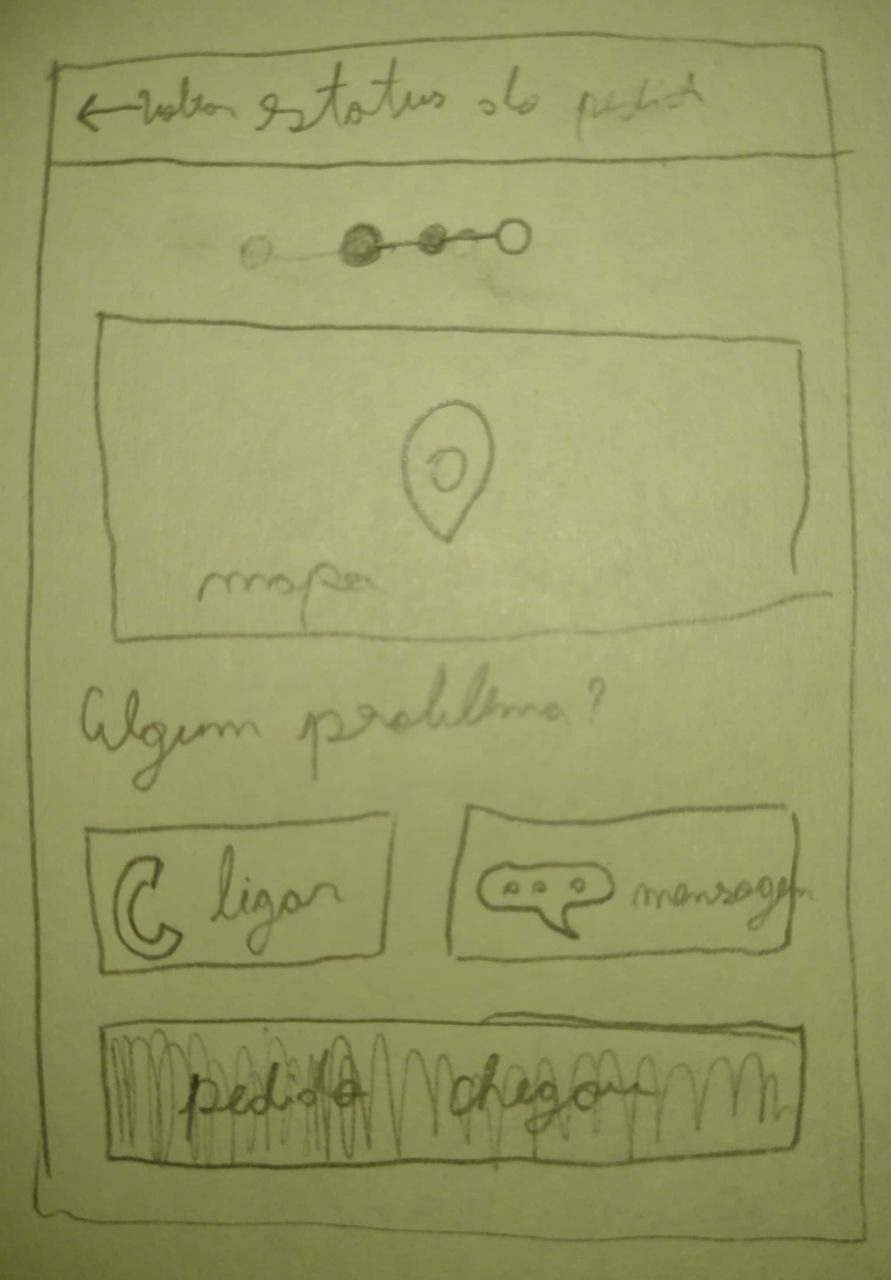 ← Voltar status do pedido
mapa
Algum problema?
ligar mensagem
pedido chegou